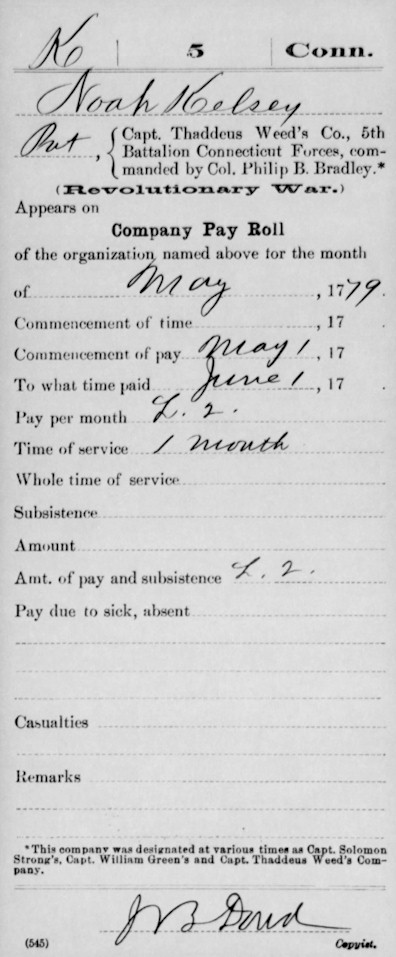 K | 5 | Conn.
Noah Kelsey
Pvt, { Capt. Thaddeus Weed's Co., 5th
Battalion Connecticut Forces, com-
manded by Col. Philip B. Bradley.*
(Revolutionary War.)
Appears on
Company Pay Roll
of the organization named above for the month
of May, 1779.
Commencement of time, 17 .
Commencement of pay May 1, 17 .
To what time paid June 1, 17 .
Pay per month £. 2.
Time of service 1 month
Whole time of service
Subsistence
Amount
Amt. of pay and subsistence £. 2.
Pay due to sick, absent
Casualties
Remarks
*This company was designated at various times as Capt. Solomon
Strong's, Capt. William Green's and Capt. Thaddeus Weed's Com-
pany.
J B Dowd
(545) Copyist.